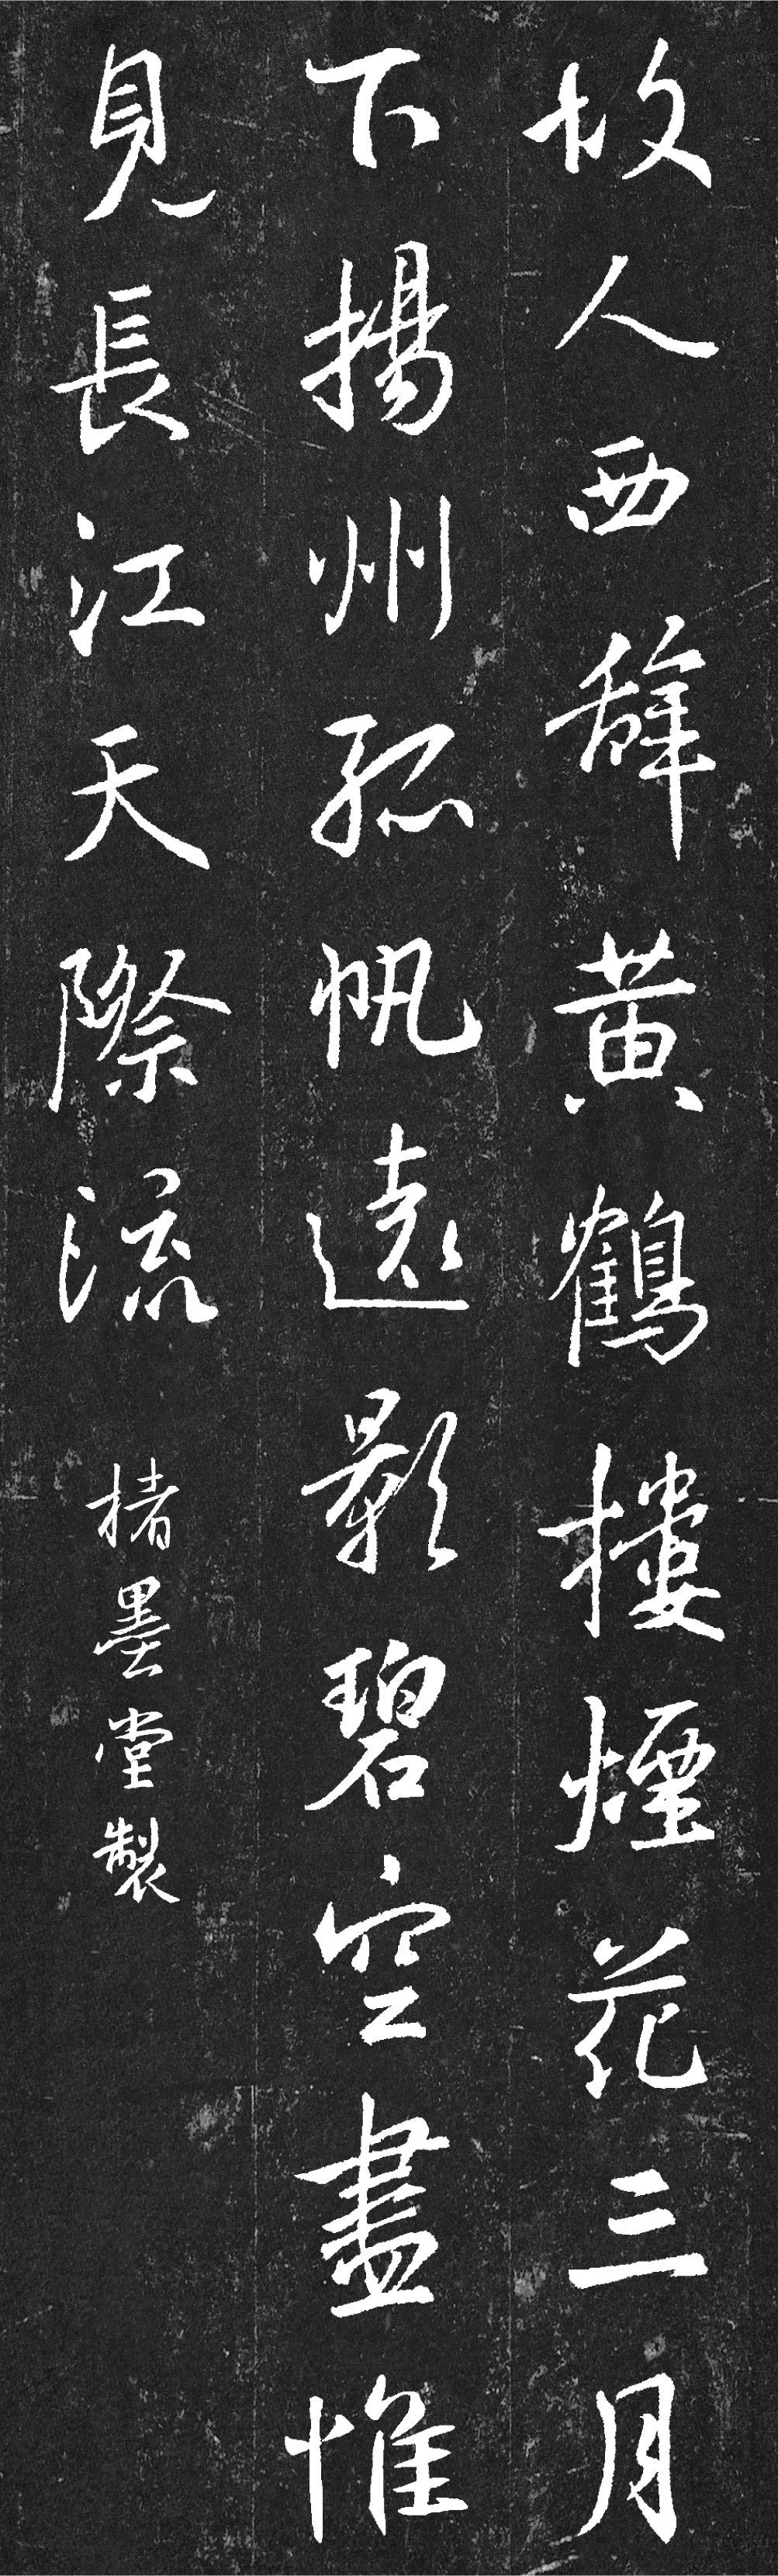 故人西辭黃鶴樓煙花三月
下揚州孤帆遠影碧空盡惟
見長江天際流
楮墨堂製